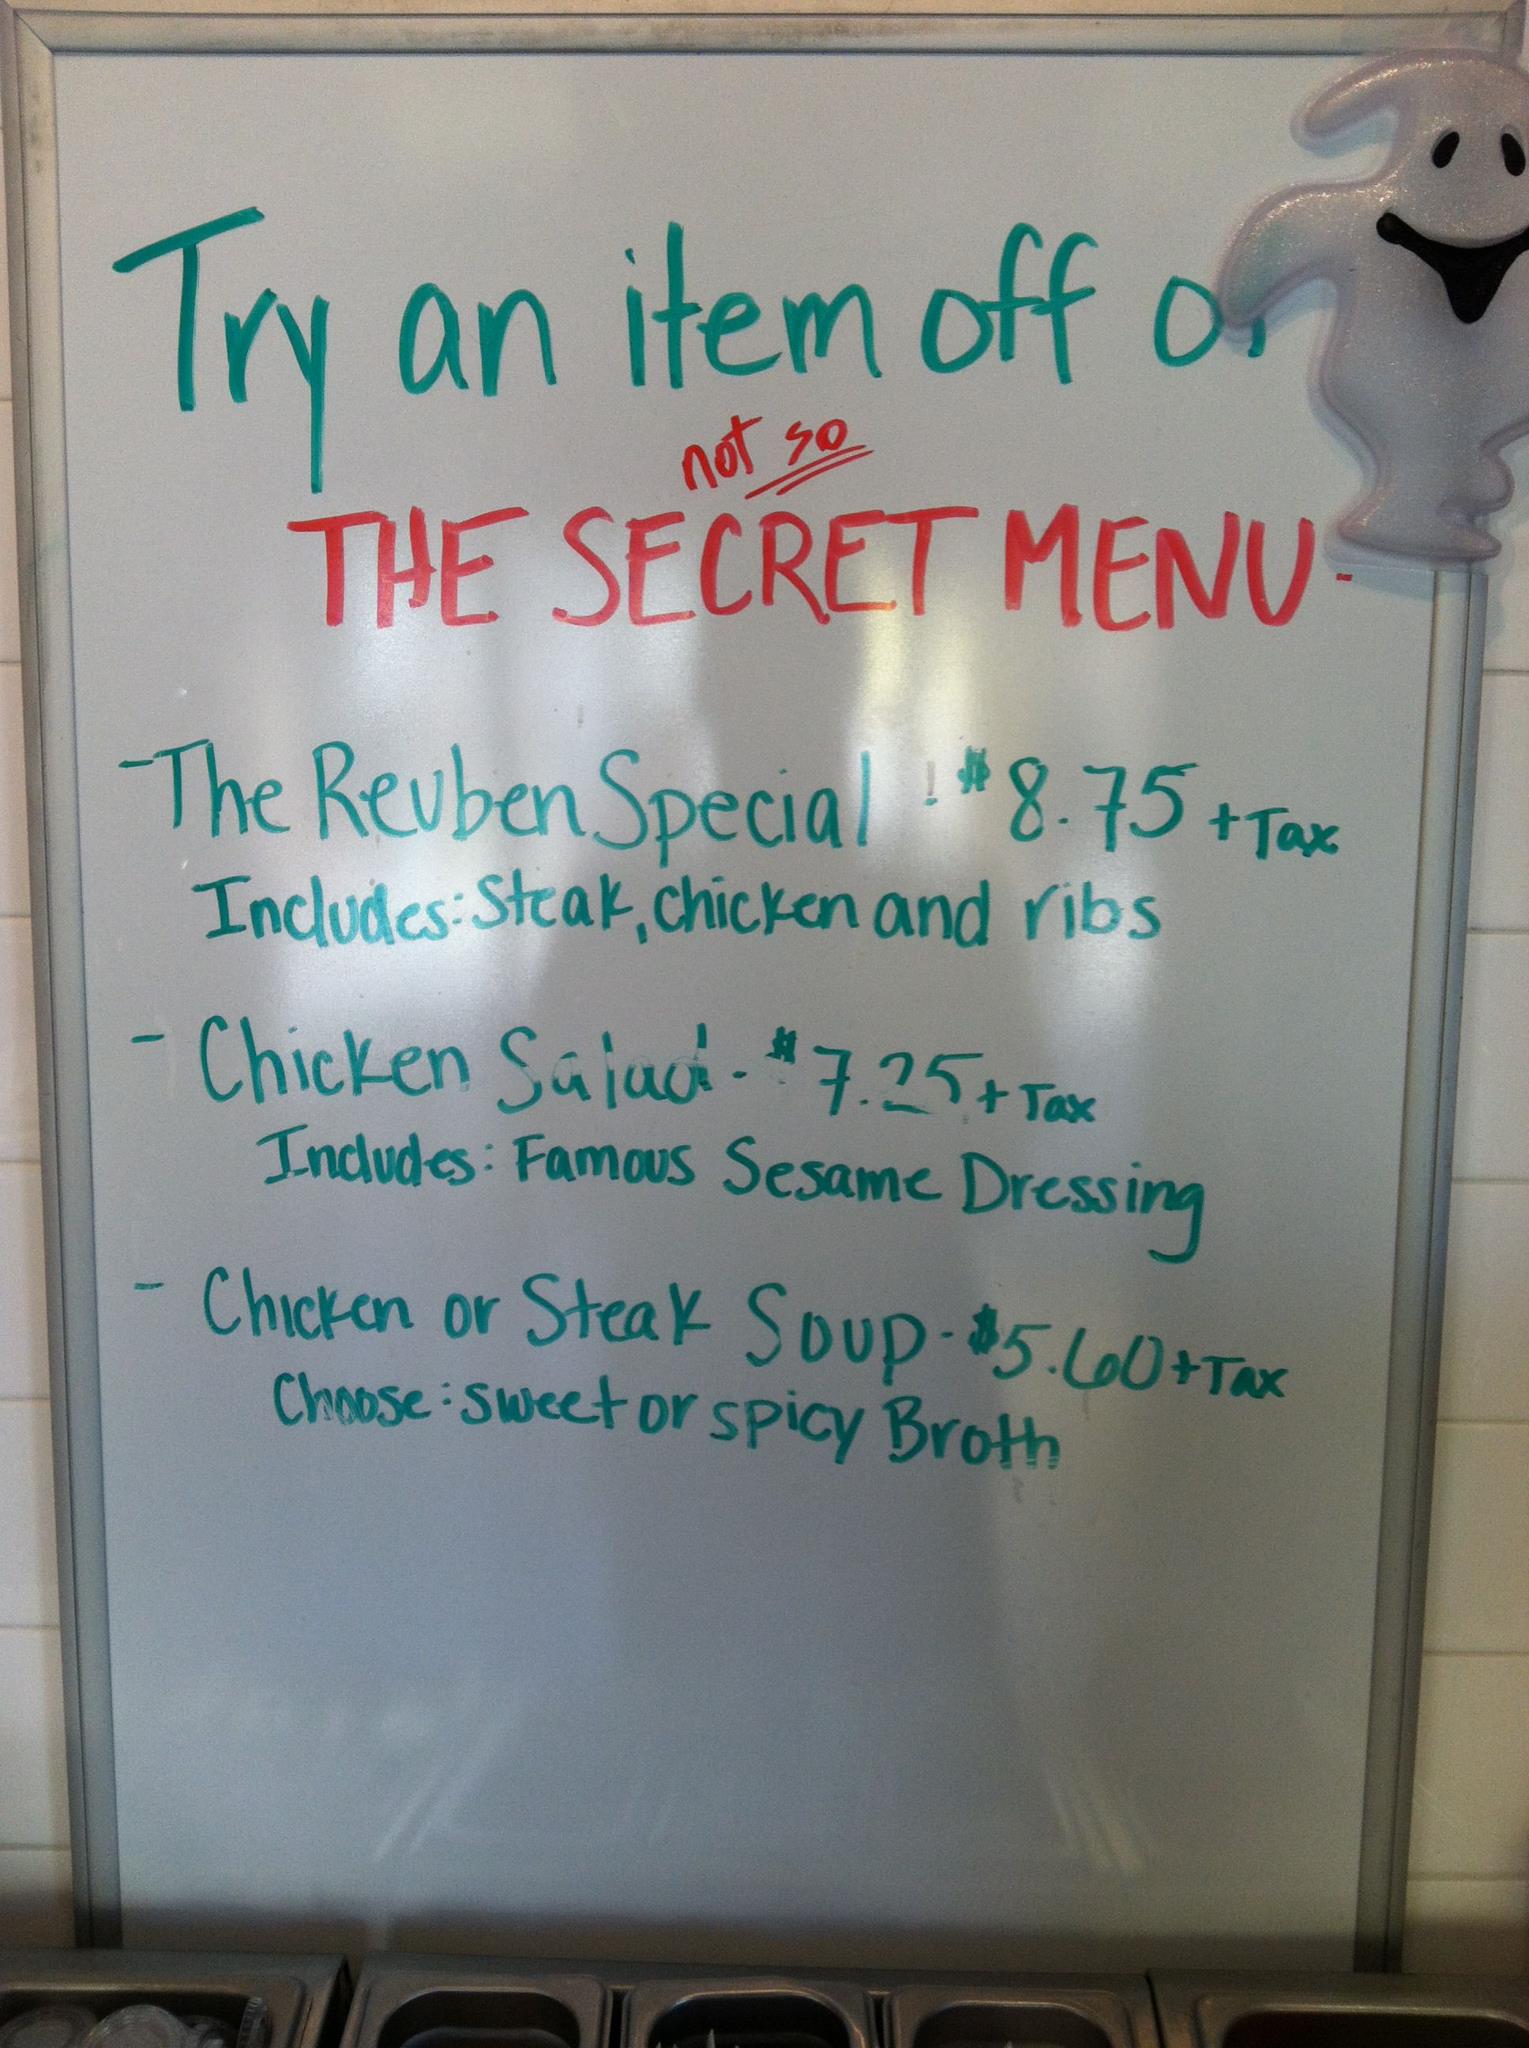 Try an item off
not so
THE SECRET MENU-
-The Reuben Special ! $8.75 + Tax
Includes: Steak, chicken and ribs
- Chicken Salad - $7.25 + Tax
Includes: Famous Sesame Dressing
- Chicken or Steak Soup - $5.60 + Tax
Choose: sweet or spicy Broth